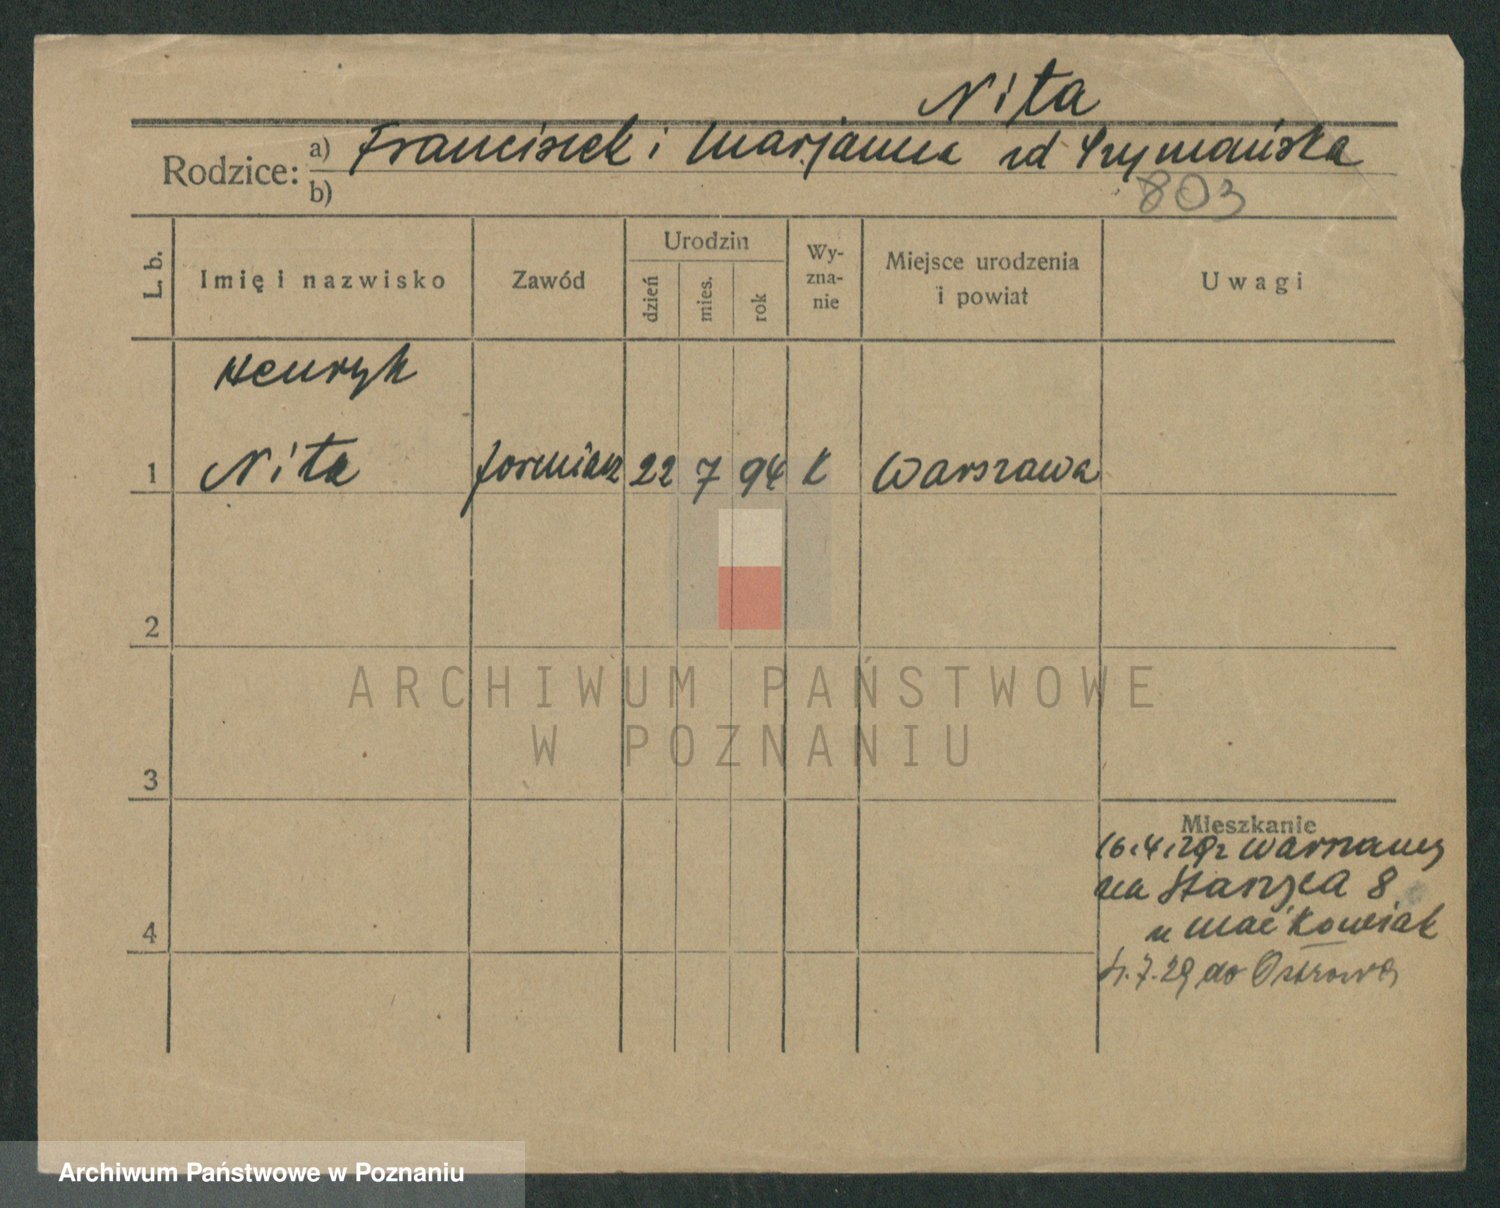 Nita
Rodzice: a) Franciszek i Marjanna zd Szymańska
b)
803
L. b.
Imię i nazwisko
Zawód
Urodzin
dzień
mies.
rok
Wy-
zna-
nie
Miejsce urodzenia
i powiat
Uwagi
Henryk
1 Nita formiarz 22 7 94 k Warszawa
2
3
4
Mieszkanie
16.4.29 z Warszawy
na Starzca 8
u Maćkowiak
4.7.29 do Ostrowa
ARCHIWUM PAŃSTWOWE
W POZNANIU
Archiwum Państwowe w Poznaniu